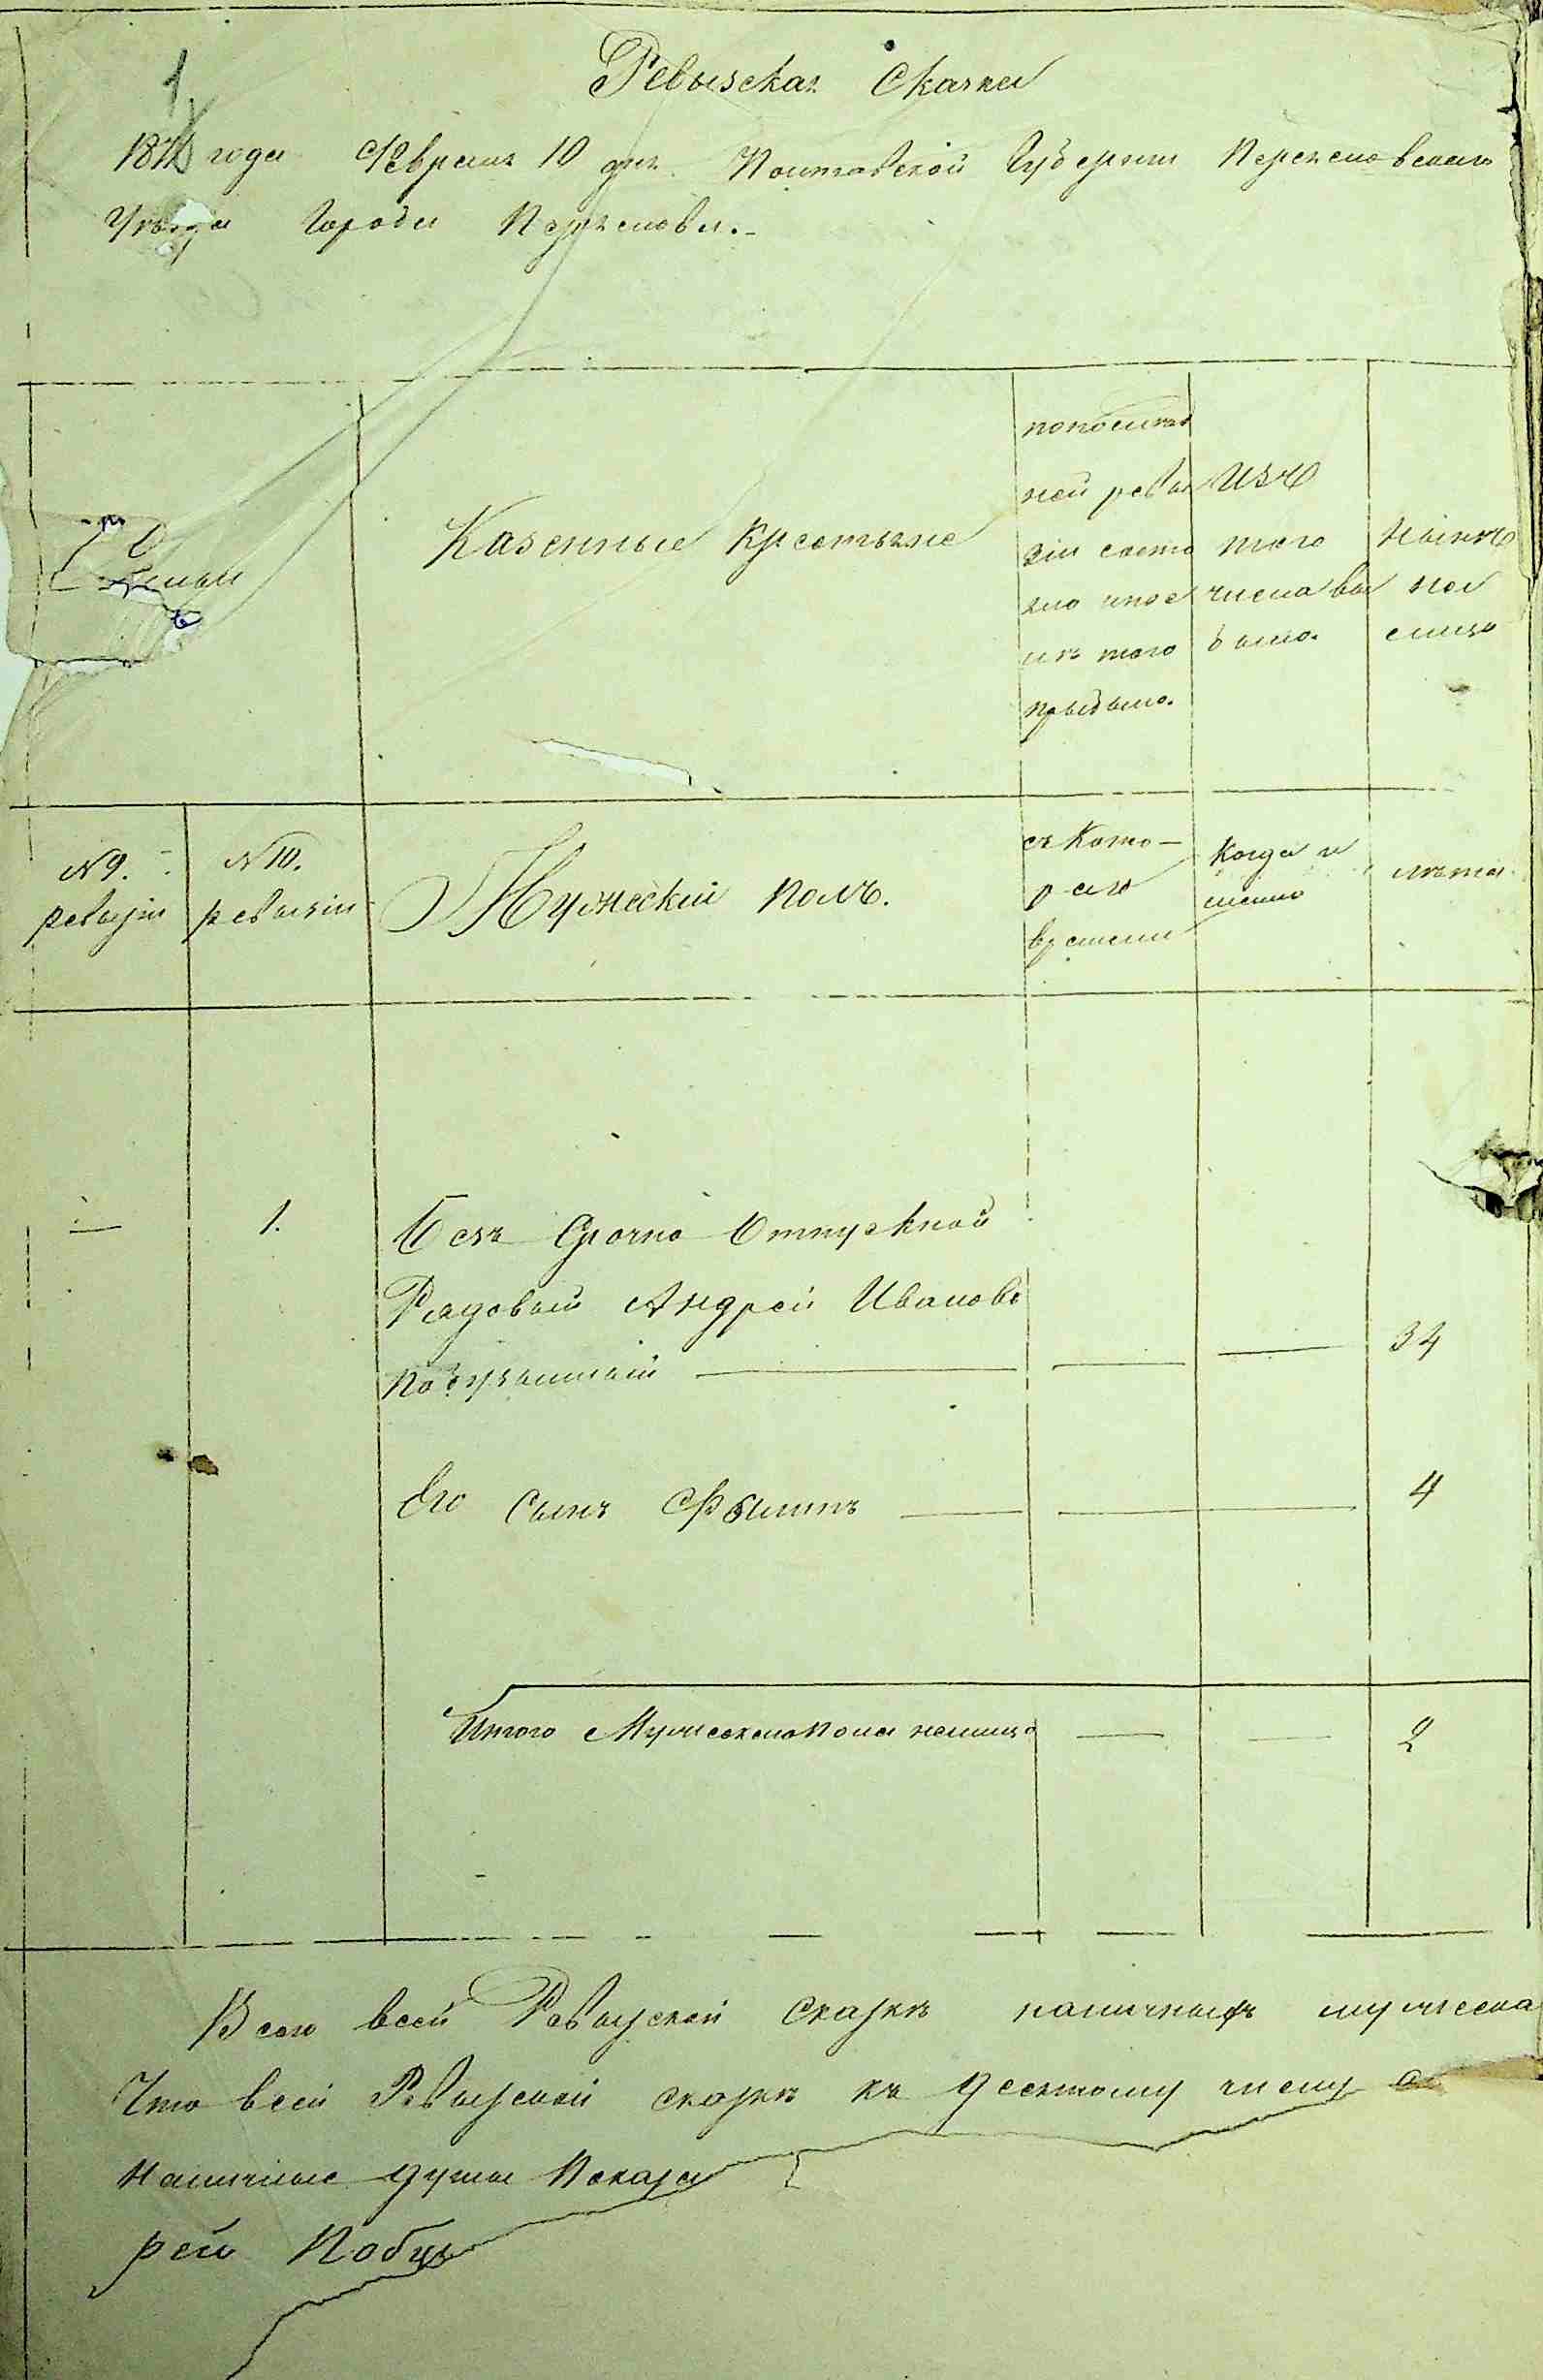 1
Ревызская Скачка
187 года Февраля 10 дня Полтавской Губернии Переяславскаго
Уѣзда Города Переяслава.
Казенные Крестьяне
попослед
ней ревы
зіи состо
яло ипосл
ихъ того
прыбыло.
Изъ
того
числа вы
было.
Нынѣ
на
лицо
№ 9.
ревызіи
№ 10.
ревызіи
Мужескій полъ.
съ Кото-
раго
времени
Когда и
менно
лѣта
— 1. Безъ Срочно Отпускной
Рядовый Андрей Ивановъ
34
Его Сынъ Филипъ 4
Итого Мужескаго Пола налицо 2
Всего всей Ревызской Сказкѣ наличныхъ мужеска
Что всей Ревызской сказкѣ къ десятому числу
Наличные души Показа
рей Побу